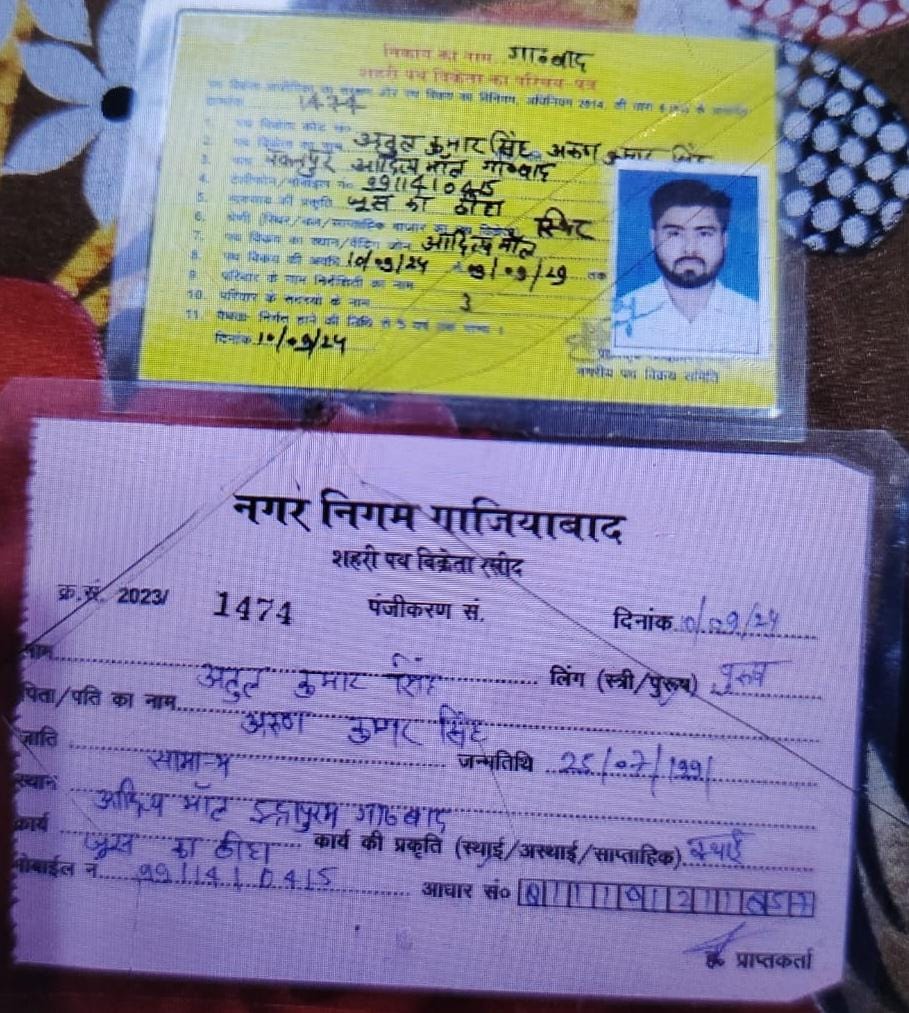 निकाय का नाम गा०बाद
शहरी पथ विक्रेता का परिचय-पत्र
1474
1. पथ विक्रेता कोड सं०
2. पथ विक्रेता का नाम अतुल कुमार सिंह अरुण कुमार सिंह
3. पता मकनपुर आदित्य मॉल गा०बाद
4. टेलीफोन/मोबाइल नं० 9911410415
5. व्यवसाय की प्रकृति जूस का ठीया
6. श्रेणी (स्थिर/चल/साप्ताहिक बाजार स्थिर
7. पथ विक्रय का स्थान/वेंडिंग जोन आदित्य मॉल
8. पथ विक्रय की अवधि 10/09/24 से 09/09/29 तक
9. परिवार के नाम निर्देशिती का नाम
10. परिवार के सदस्यों के नाम 3
11. वैधता: निर्गत होने की तिथि से 5 वर्ष
दिनांक 10/09/24
नगरीय पथ विक्रय समिति
नगर निगम गाजियाबाद
शहरी पथ विक्रेता रसीद
क्र.सं. 2023/ 1474 पंजीकरण सं. दिनांक 10/09/24
नाम अतुल कुमार सिंह लिंग (स्त्री/पुरूष) पुरूष
पिता/पति का नाम अरुण कुमार सिंह
जाति सामान्य जन्मतिथि 25/07/1991
स्थान आदित्य मॉल इन्द्रापुरम गा०बाद
कार्य जूस का ठीया कार्य की प्रकृति (स्थाई/अस्थाई/साप्ताहिक) स्थाई
मोबाईल नं. 9911410415 आधार सं०
प्राप्तकर्ता